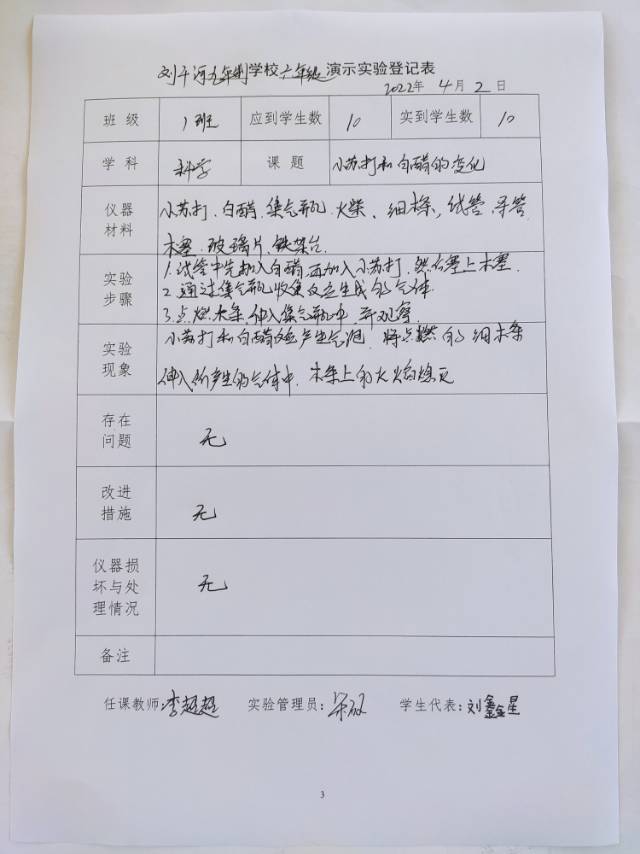 刘干河九年制学校六年级演示实验登记表
2022年 4月 2日
班 级 1班 应到学生数 10 实到学生数 10
学 科 科学 课 题 小苏打和白醋的变化
仪器材料 小苏打、白醋、集气瓶、火柴、细木条、试管、导管、
木塞、玻璃片、铁架台
实验步骤 1.试管中先加入白醋,再加入小苏打,然后塞上木塞.
2.通过集气瓶收集反应生成的气体
3.点燃木条伸入集气瓶中 并观察.
实验现象 小苏打和白醋反应产生气泡,将点燃的细木条
伸入所产生的气体中,木条上的火焰熄灭
存在问题 无
改进措施 无
仪器损坏与处理情况 无
备注
任课教师:李超超 实验管理员: 学生代表:刘鑫星
3